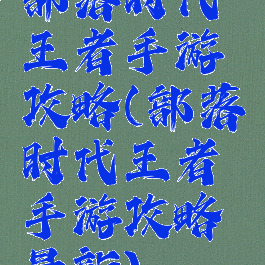 部落时代
王者手游
攻略(部落
时代王者
手游攻略
最新)